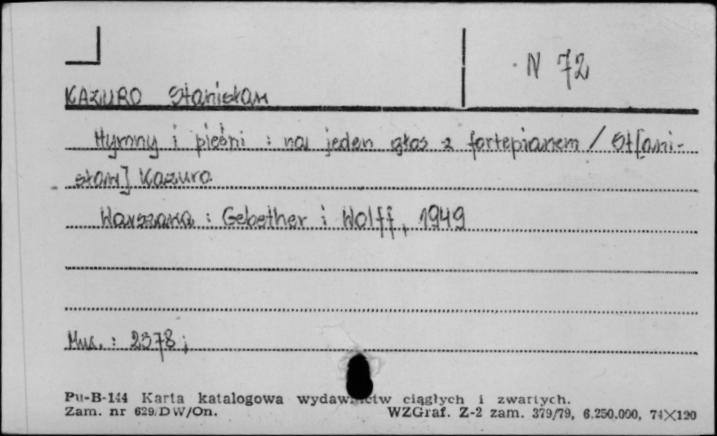 N 72
KAZURO Stanisław
Hymny i pieśni : na jeden głos z fortepianem / St[ani-
sław] Kazuro
Warszawa : Gebether i Wolff, 1949
Mus. : 2378;
Pu-B-144 Karta katalogowa wydawnictw ciągłych i zwartych.
Zam. nr 629/DW/On. WZGraf. Z-2 zam. 379/79, 6.250.000, 74×120